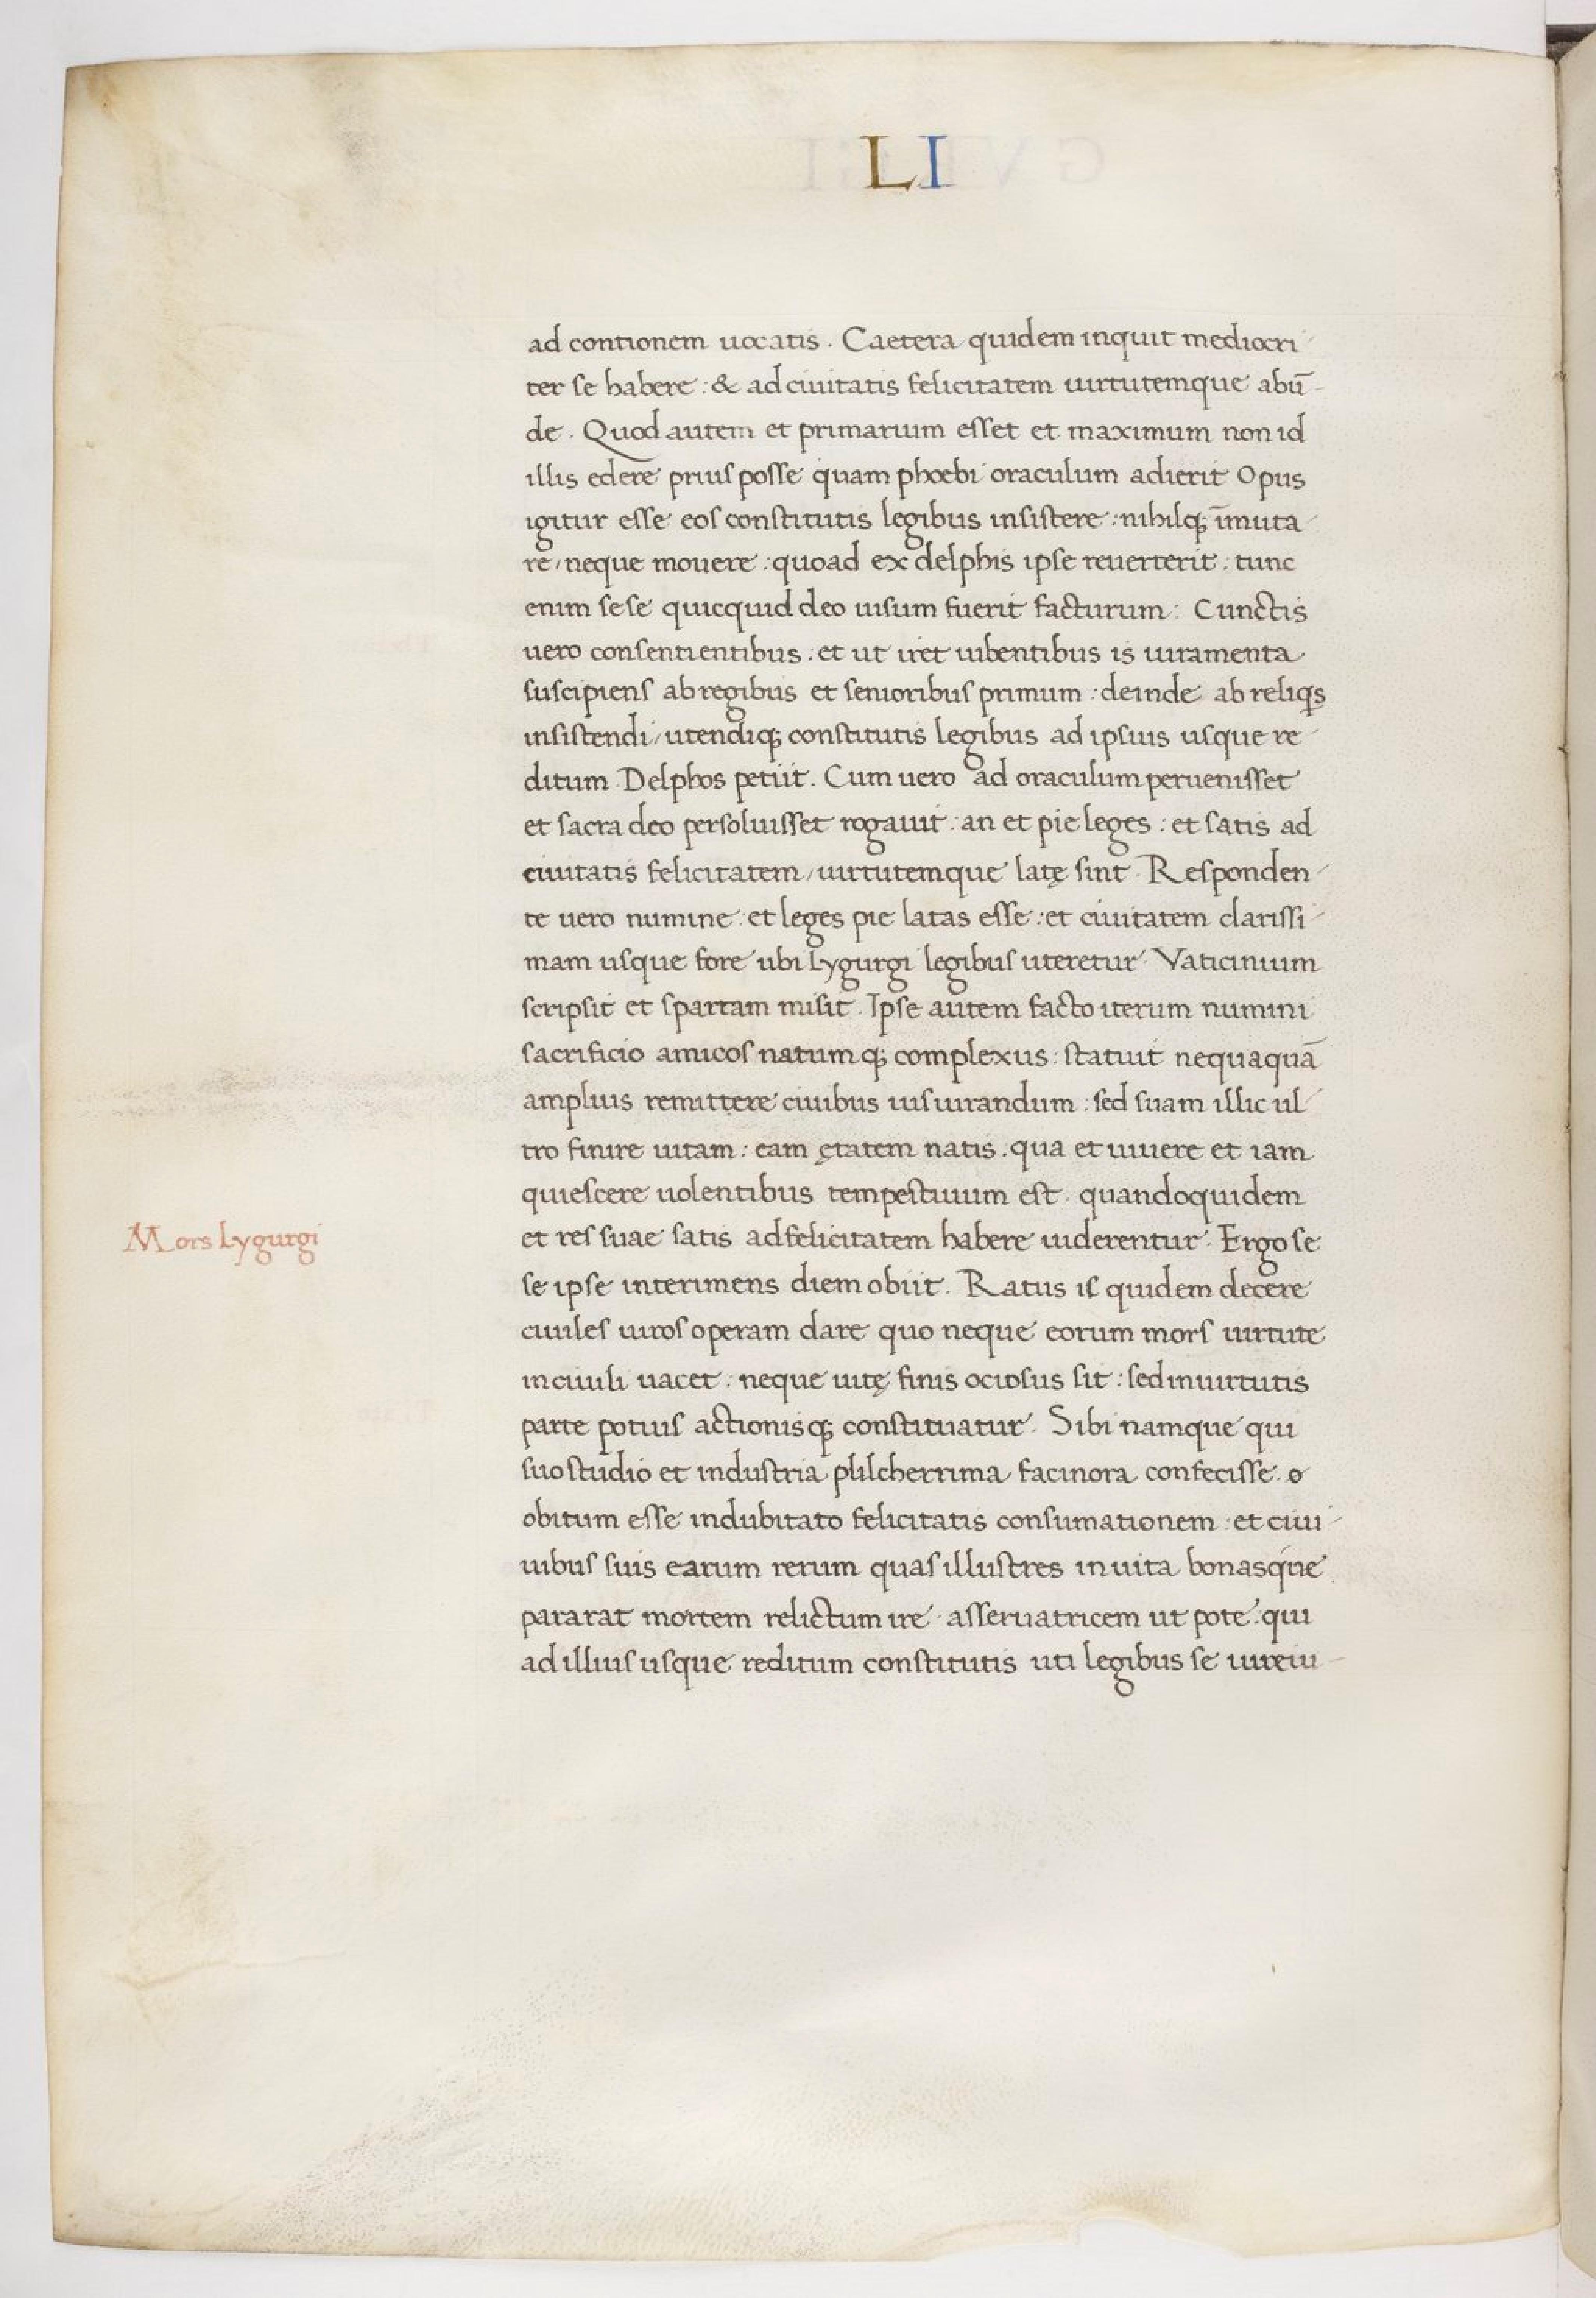 LI
ad contionem uocatis. Caetera quidem inquit mediocri
ter se habere: & ad ciuitatis felicitatem uirtutemque abū
de. Quod autem et primarium esset et maximum non id
illis edere prius posse quam phoebi oraculum adierit Opus
igitur esse eos constitutis legibus insistere: nihilq; īmuta
re/neque mouere: quoad ex delphis ipse reuerterit: tunc
enim sese quicquid deo uisum fuerit facturum: Cunctis
uero consentientibus: et ut iret iubentibus is iuramenta
suscipiens ab regibus et senioribus primum: deinde ab reliqs
insistendi/utendiq; constitutis legibus ad ipsius usque re
ditum Delphos petiit. Cum uero ad oraculum peruenisset
et sacra deo persoluisset rogauit: an et pie leges: et satis ad
ciuitatis felicitatem/uirtutemque latę sint. Responden
te uero numine: et leges pie latas esse: et ciuitatem clarissi
mam usque fore ubi Lygurgi legibus uteretur. Vaticinium
scripsit et spartam misit. Ipse autem facto iterum numini
sacrificio amicos natumq; complexus: statuit nequaquā
amplius remittere ciuibus iusiurandum: sed suam illic ul
tro finire uitam: eam ętatem natis. qua et uiuere et iam
quiescere uolentibus tempestiuum est. quandoquidem
Mors Lygurgi
et res suae satis ad felicitatem habere uiderentur. Ergo se
se ipse interimens diem obiit. Ratus is quidem decere
ciuiles uiros operam dare quo neque eorum mors uirtute
in ciuili uacet: neque uitę finis ociosus sit: sed in uirtutis
parte potius actionisq; constituatur. Sibi namque qui
suo studio et industria plilcherrima facinora confecisse. o
obitum esse indubitato felicitatis consumationem: et ciui
uibus suis earum rerum quas illustres in uita bonasque
pararat mortem relictum ire. asseruatricem ut pote. qui
ad illius usque reditum constitutis uti legibus se iureiu